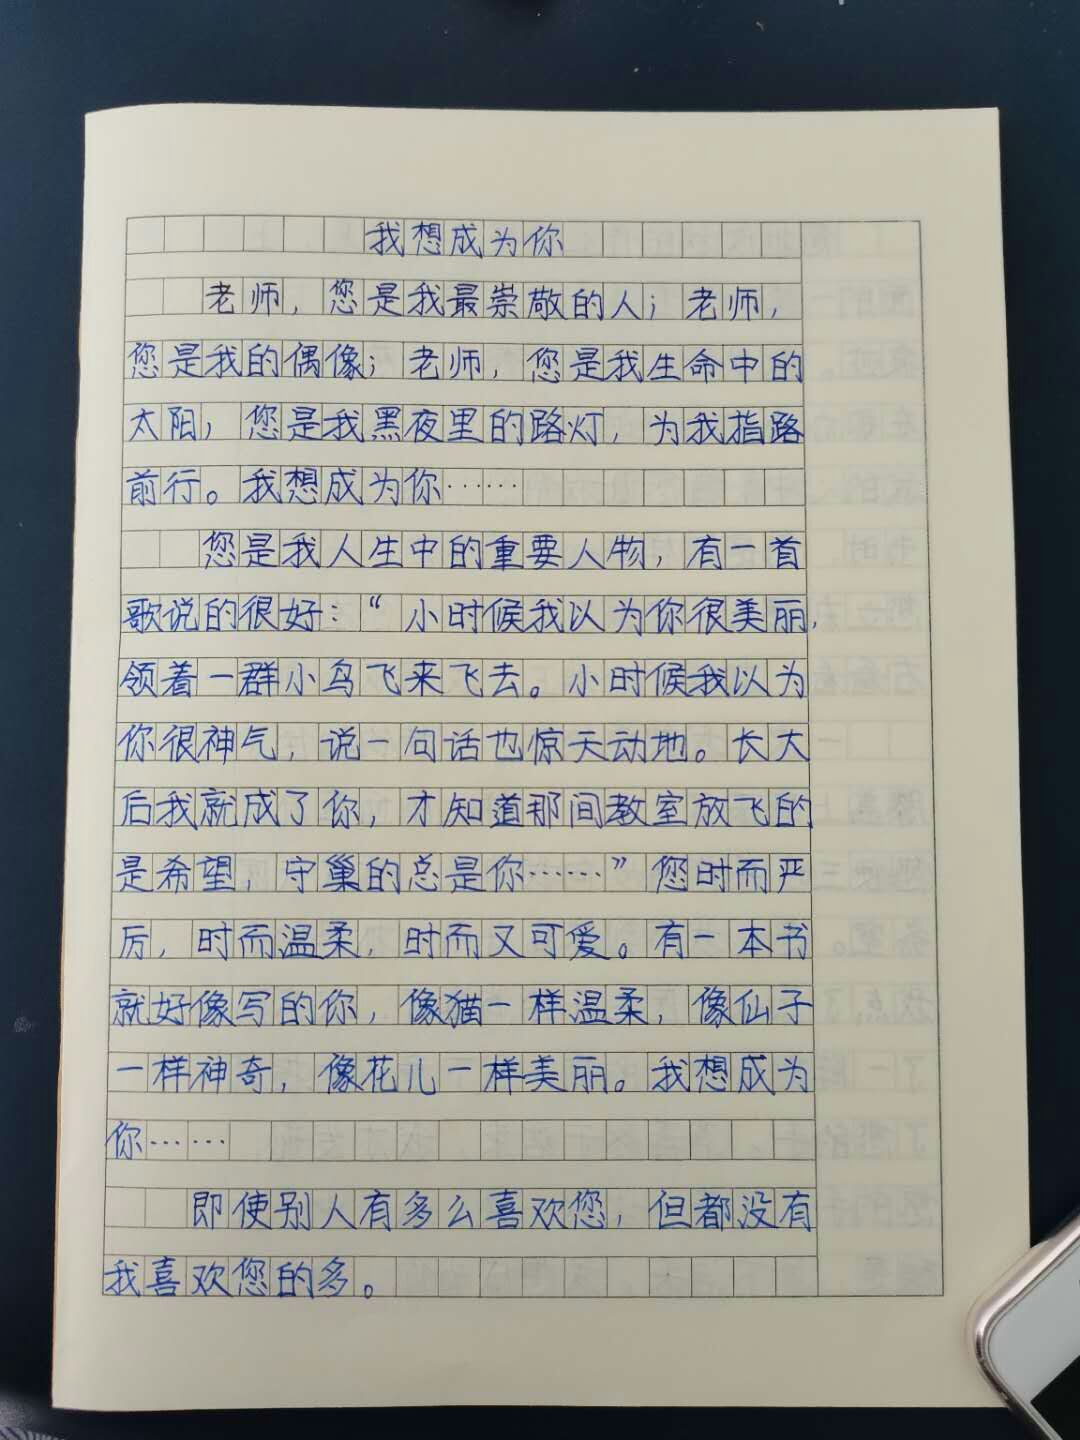 我想成为你
老师，您是我最崇敬的人；老师，
您是我的偶像；老师，您是我生命中的
太阳，您是我黑夜里的路灯，为我指路
前行。我想成为你……
您是我人生中的重要人物，有一首
歌说的很好：“小时候我以为你很美丽，
领着一群小鸟飞来飞去。小时候我以为
你很神气，说一句话也惊天动地。长大
后我就成了你，才知道那间教室放飞的
是希望，守巢的总是你……”您时而严
厉，时而温柔，时而又可爱。有一本书
就好像写的你，像猫一样温柔，像仙子
一样神奇，像花儿一样美丽。我想成为
你……
即使别人有多么喜欢您，但都没有
我喜欢您的多。